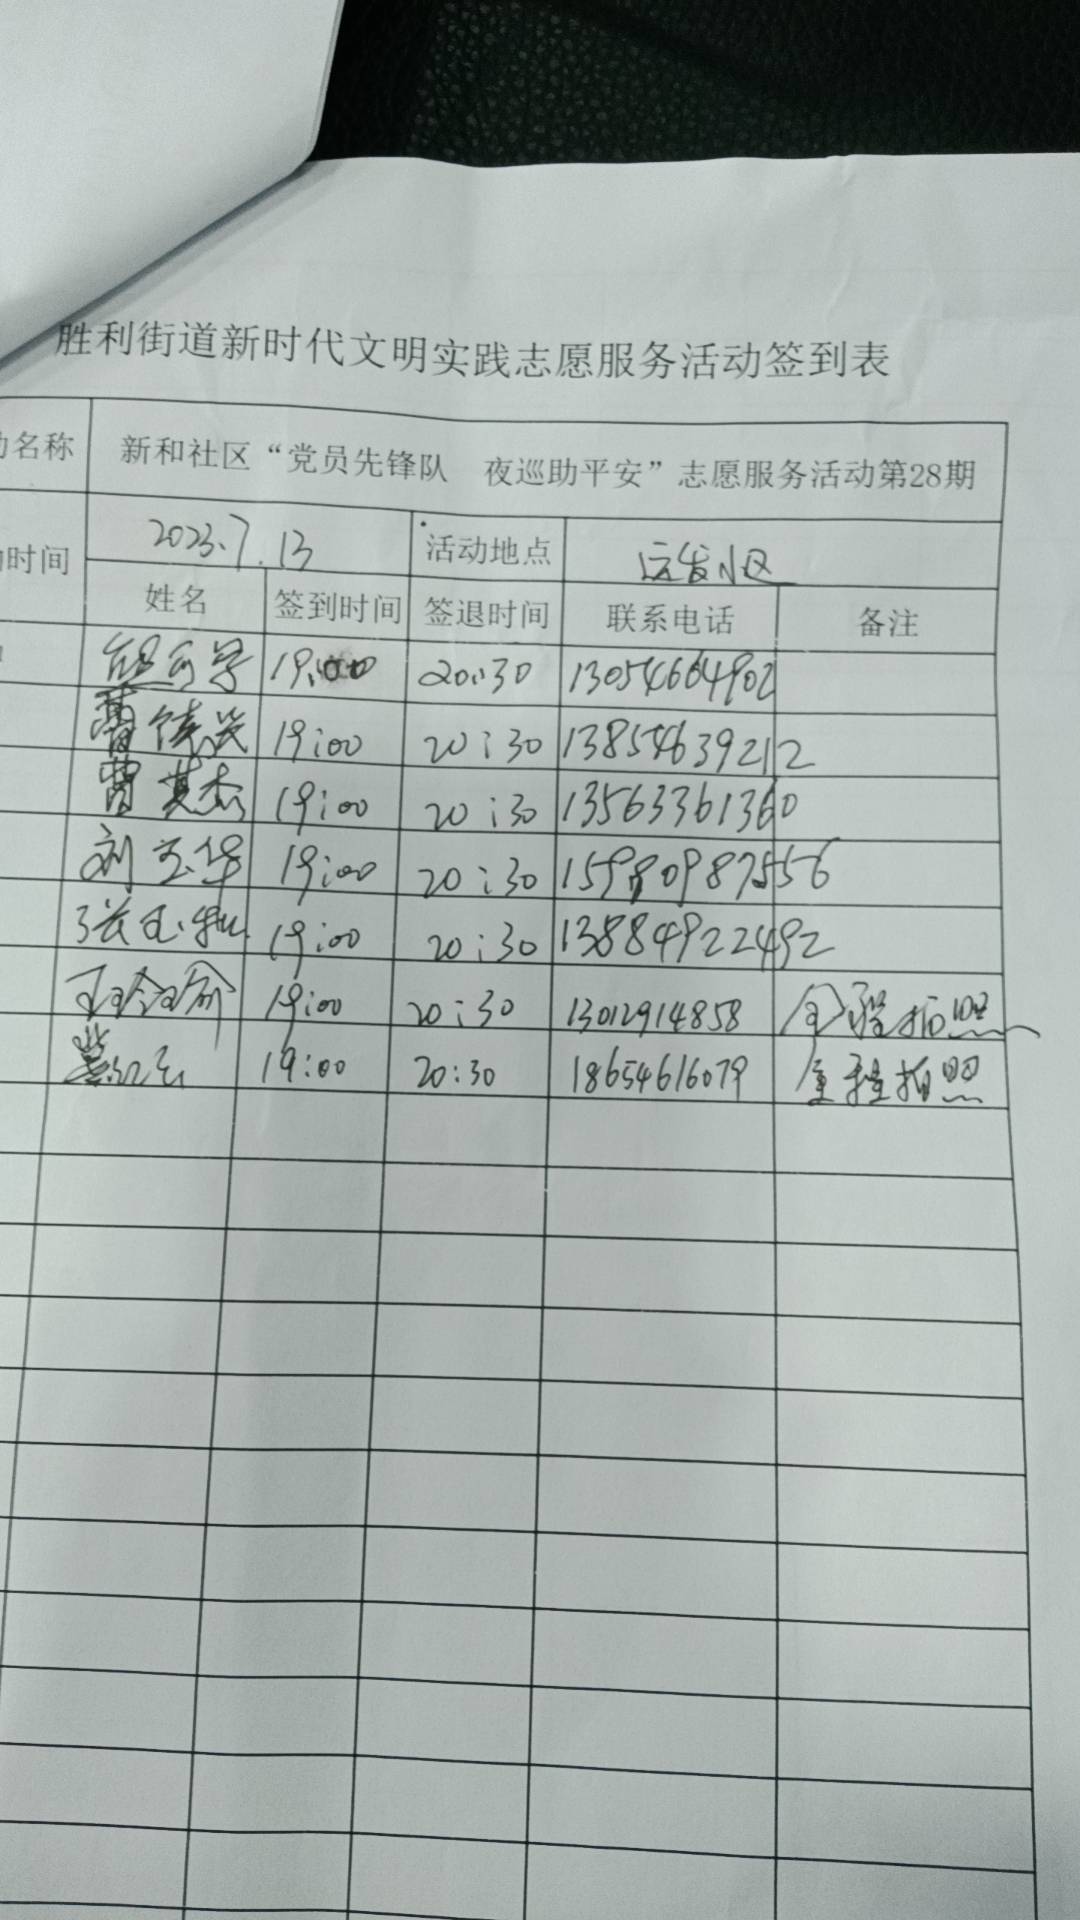 胜利街道新时代文明实践志愿服务活动签到表
动名称 新和社区“党员先锋队 夜巡助平安”志愿服务活动第28期
时间 2023.7.13 活动地点 远发小区
姓名 签到时间 签退时间 联系电话 备注
19:00 20:30 13054664902
曹 19:00 20:30 13854639212
曹其杰 19:00 20:30 13563361360
刘玉华 19:00 20:30 15980987556
张玉 19:00 20:30 13884922492
19:00 20:30 13012914858 全程拍照
19:00 20:30 18654616079 全程拍照